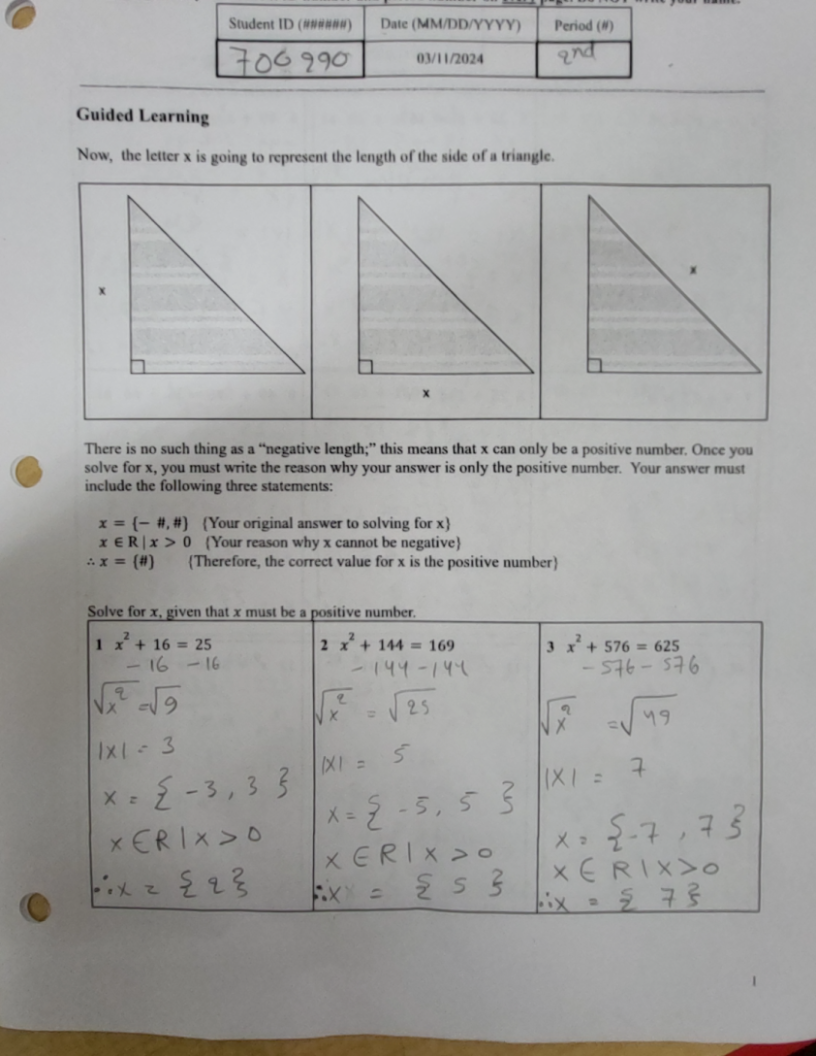 Student ID (######) Date (MM/DD/YYYY) Period (#)
706990 03/11/2024 2nd
Guided Learning
Now, the letter x is going to represent the length of the side of a triangle.
x
x
x
There is no such thing as a “negative length;” this means that x can only be a positive number. Once you
solve for x, you must write the reason why your answer is only the positive number. Your answer must
include the following three statements:
x = {− #, #} {Your original answer to solving for x}
x ∈ R | x > 0 {Your reason why x cannot be negative}
∴ x = {#} {Therefore, the correct value for x is the positive number}
Solve for x, given that x must be a positive number.
1 x² + 16 = 25
- 16 - 16
√x² = √9
|x| = 3
x = { -3, 3 }
x ∈ R | x > 0
∴ x = { 2 }
2 x² + 144 = 169
- 144 - 144
√x² = √25
|x| = 5
x = { -5, 5 }
x ∈ R | x > 0
∴ x = { 5 }
3 x² + 576 = 625
- 576 - 576
√x² = √49
|x| = 7
x = { -7, 7 }
x ∈ R | x > 0
∴ x = { 7 }
1